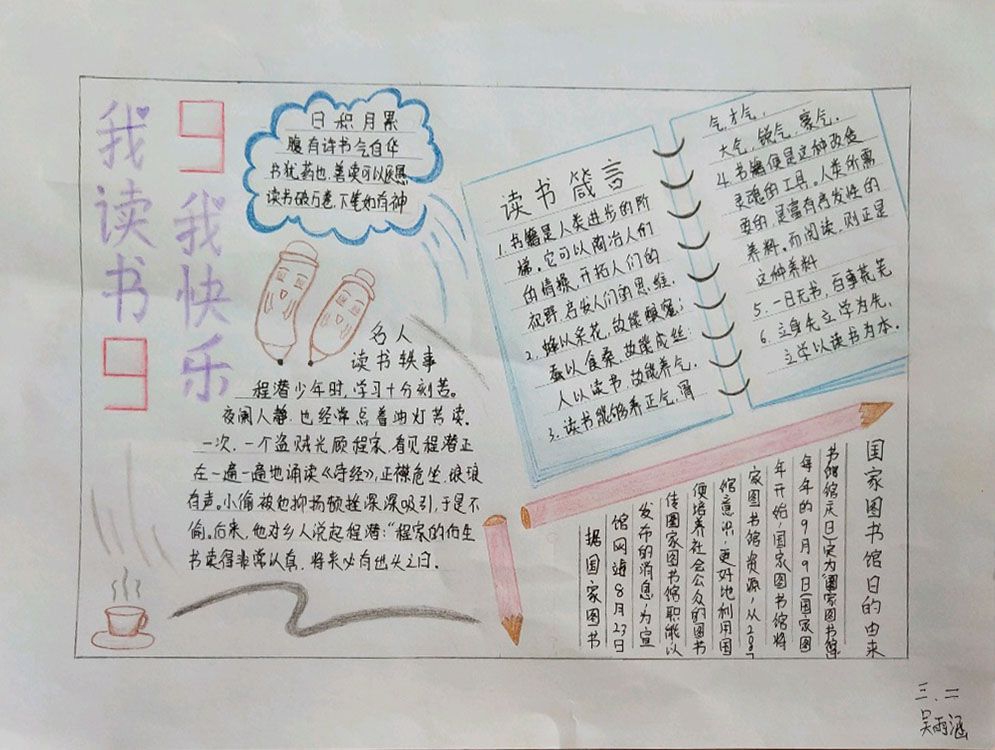 我读书
我快乐
日积月累
腹有诗书气自华
书犹药也,善读可以医愚
读书破万卷,下笔如有神
名人
读书轶事
程潜少年时,学习十分刻苦。
夜阑人静,也经常点着油灯苦读。
一次,一个盗贼光顾程家,看见程潜正
在一遍一遍地诵读《诗经》,正襟危坐,琅琅
有声。小偷被他抑扬顿挫深深吸引,于是不
偷。后来,他对乡人说起程潜:“程家的后生
书读得非常认真,将来必有出头之日。
读书箴言
1.书籍是人类进步的阶
梯。它可以陶冶人们
的情操,开拓人们的
视野,启发人们的思维.
2.蜂以采花,故能酿蜜;
蚕以食桑,故能成丝;
人以读书,故能养气.
3.读书能够养正气,骨
气,才气,
大气,锐气,豪气.
4.书籍便是这种改造
灵魂的工具。人类所需
要的,是富有启发性的
养料。而阅读,则正是
这种养料
5.一日无书,百事荒芜
6.立身先立学为先,
立学以读书为本.
国家图书馆日的由来
据国家图书
馆网站8月23日
发布的消息,为宣
传国家图书馆职能以
便培养社会公众的图书
馆意识,更好地利用国
家图书馆资源,从
年开始,国家图书馆将
每年的9月9日(国家图
书馆馆庆日)定为国家图书馆
三.二
吴雨涵